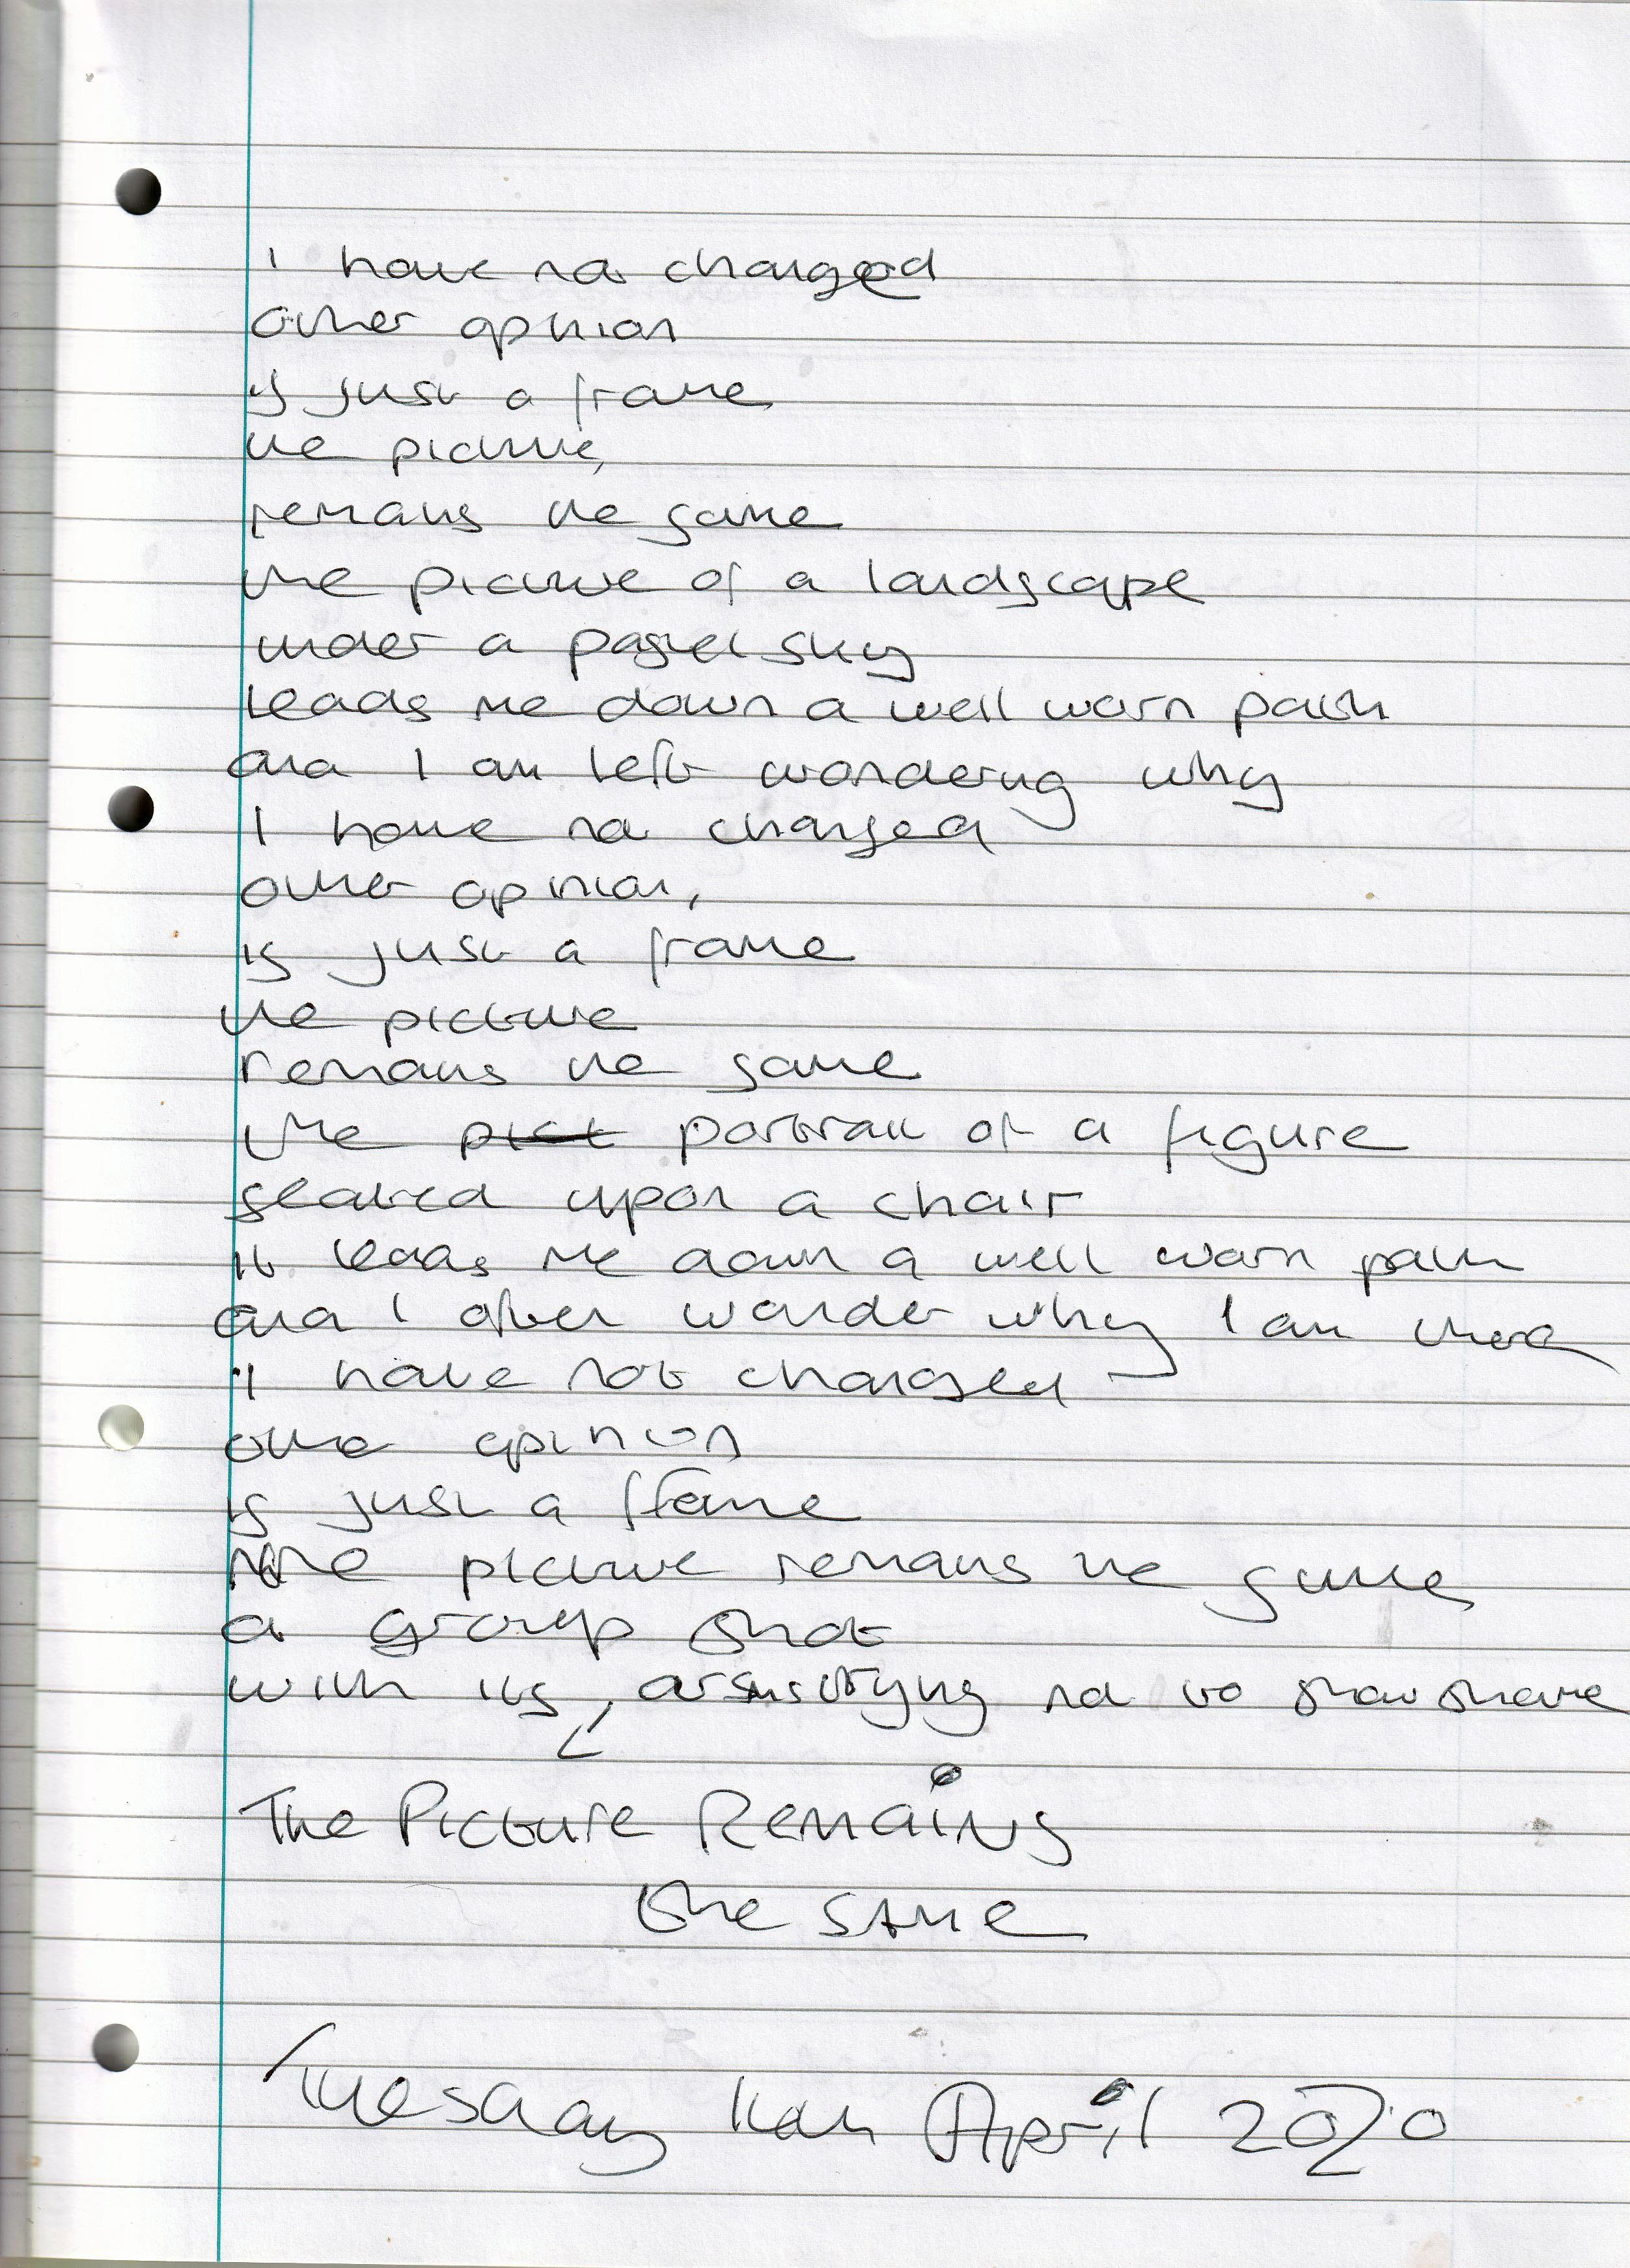 I have not changed
other opinion
is just a frame
the picture,
remains the same
the picture of a landscape
under a pastel sky
leads me down a well worn path
and I am left wondering why
I have not changed
other opinion,
is just a frame
the picture
remains the same
the pict portrait of a figure
seated upon a chair
it leads me down a well worn path
and I often wonder why I am there
I have not changed
other opinion
is just a frame
the picture remains the same
a group shot
with its
The Picture Remains
the same
Tuesday April 2020